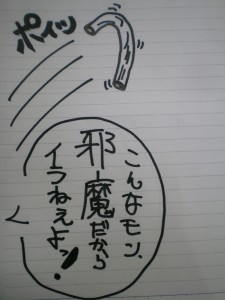 ポイッ
こんなモン、
邪魔だから
イラねぇよッ!